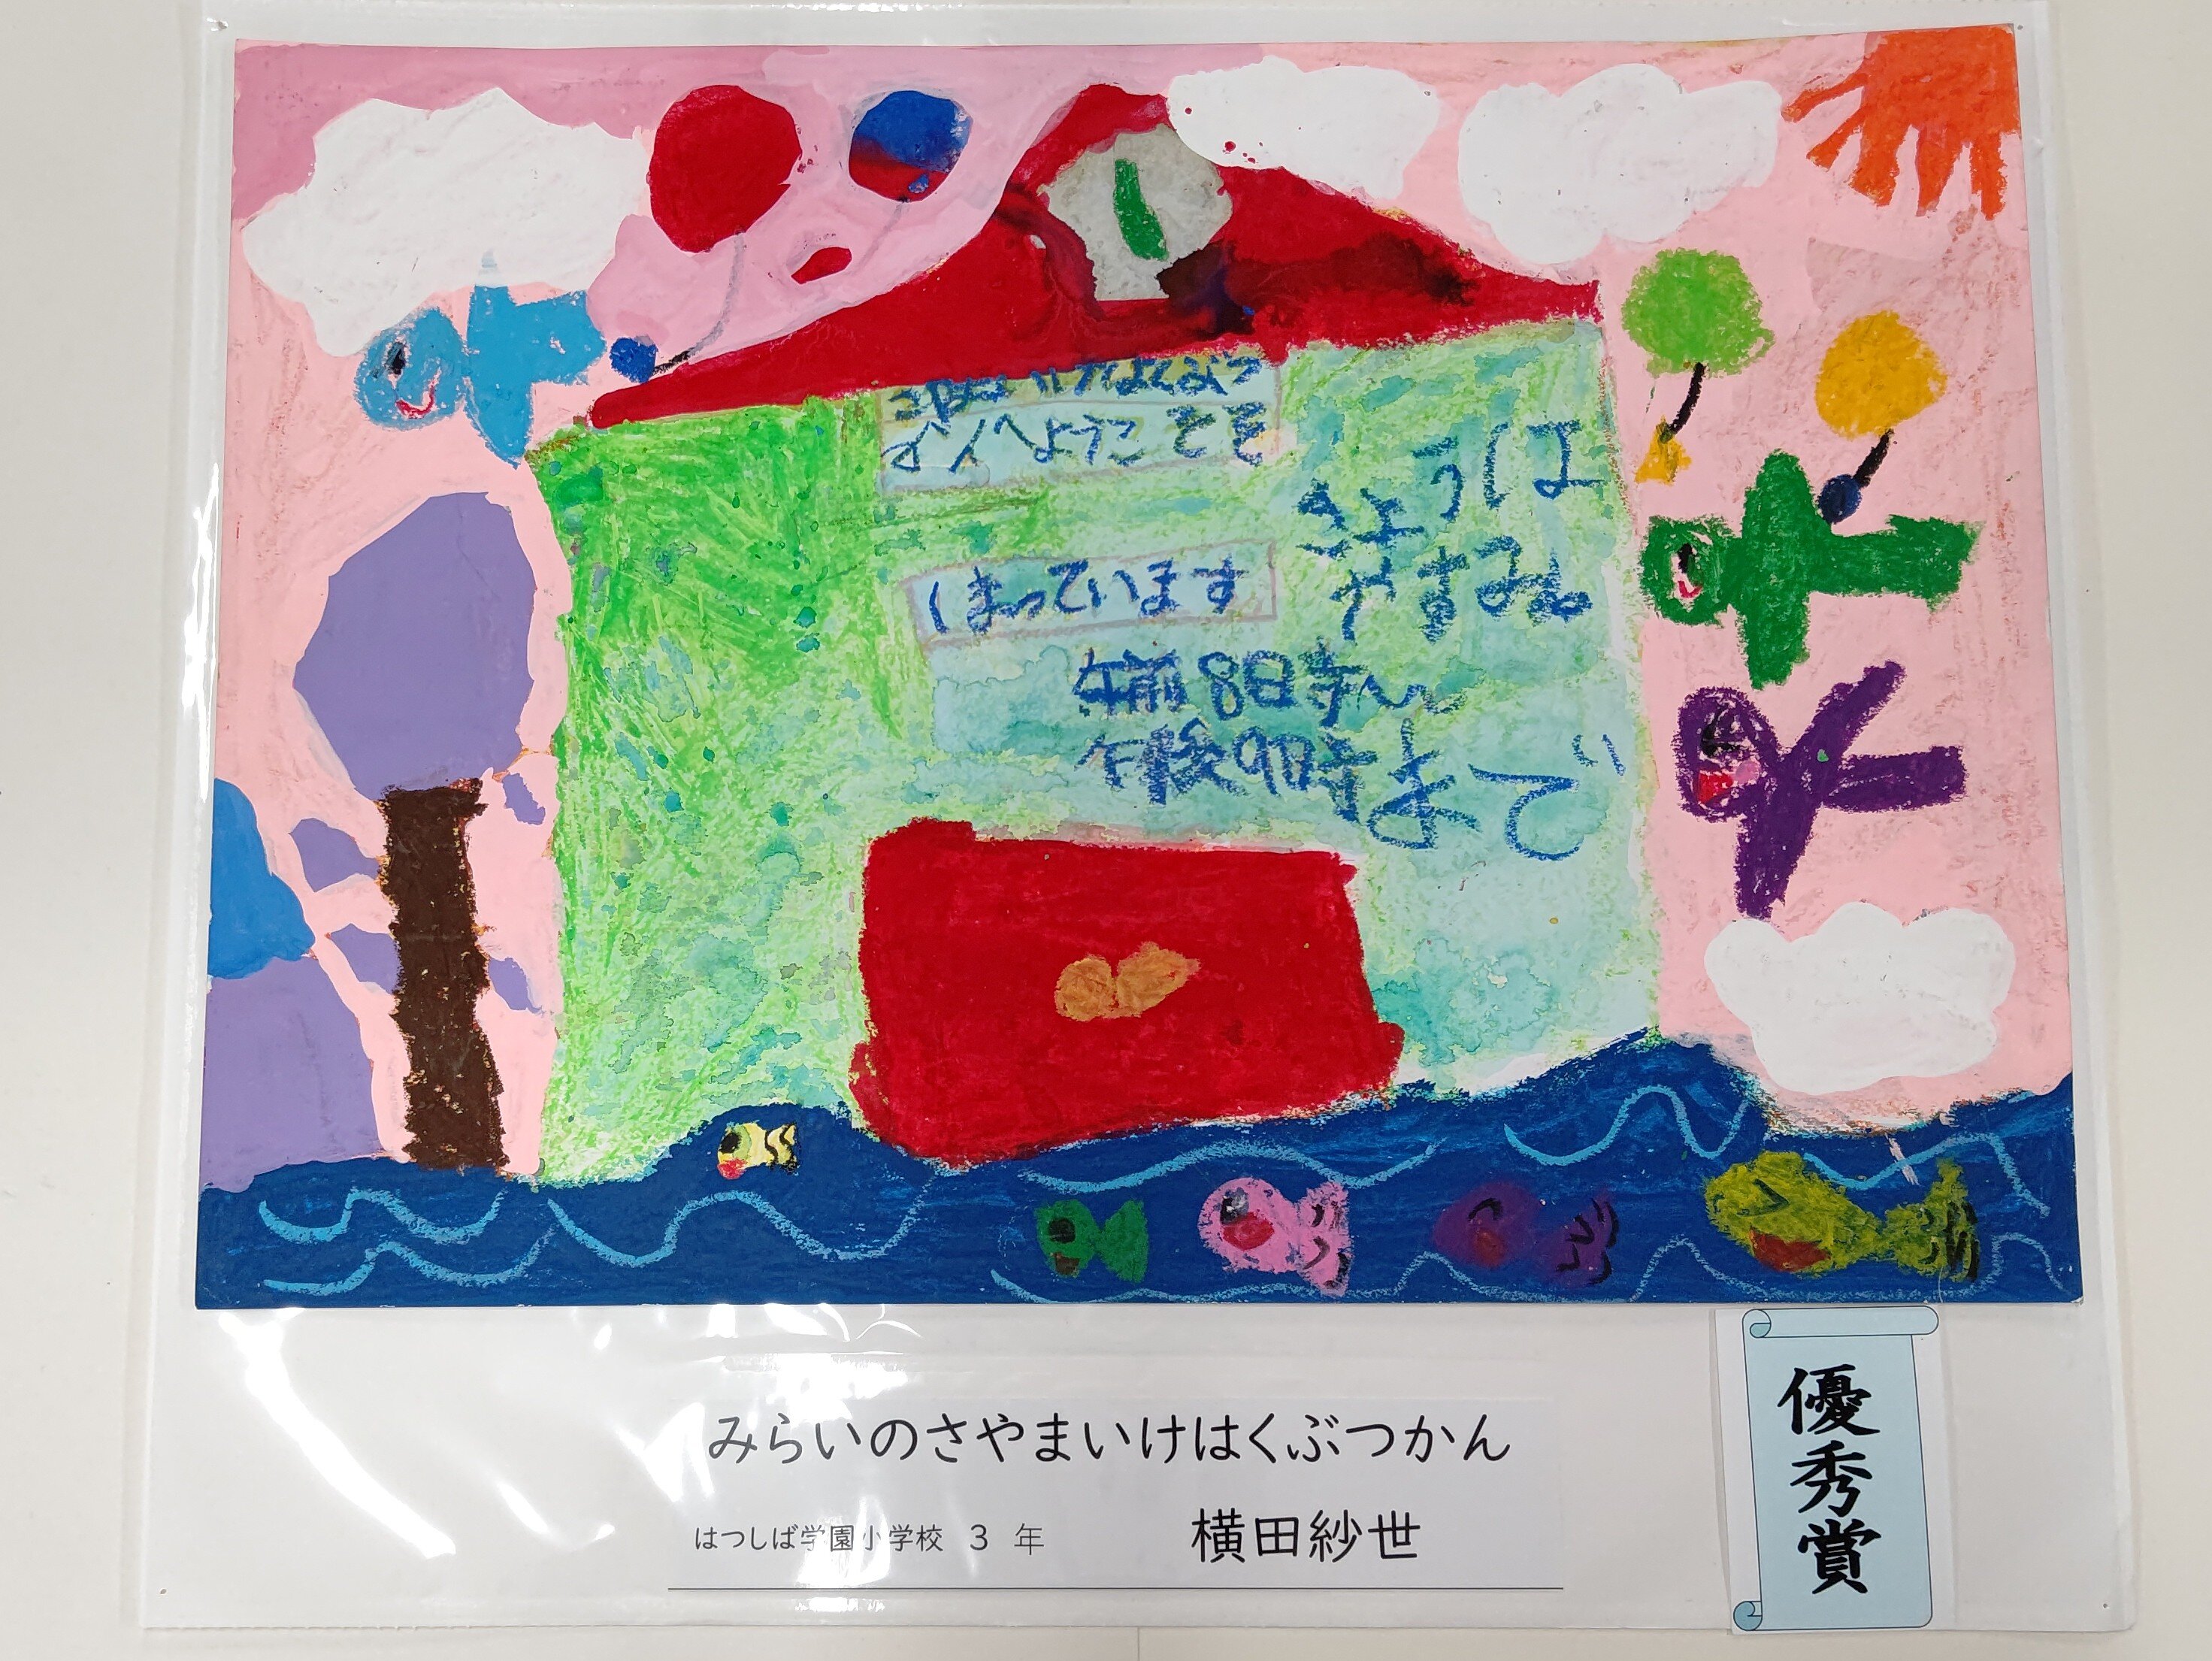 かんへようこそ
きょうは
やすみ
しまっています
午前8時〜
午後9時まで
みらいのさやまいけはくぶつかん
はつしば学園小学校 3 年
横田紗世
優秀賞